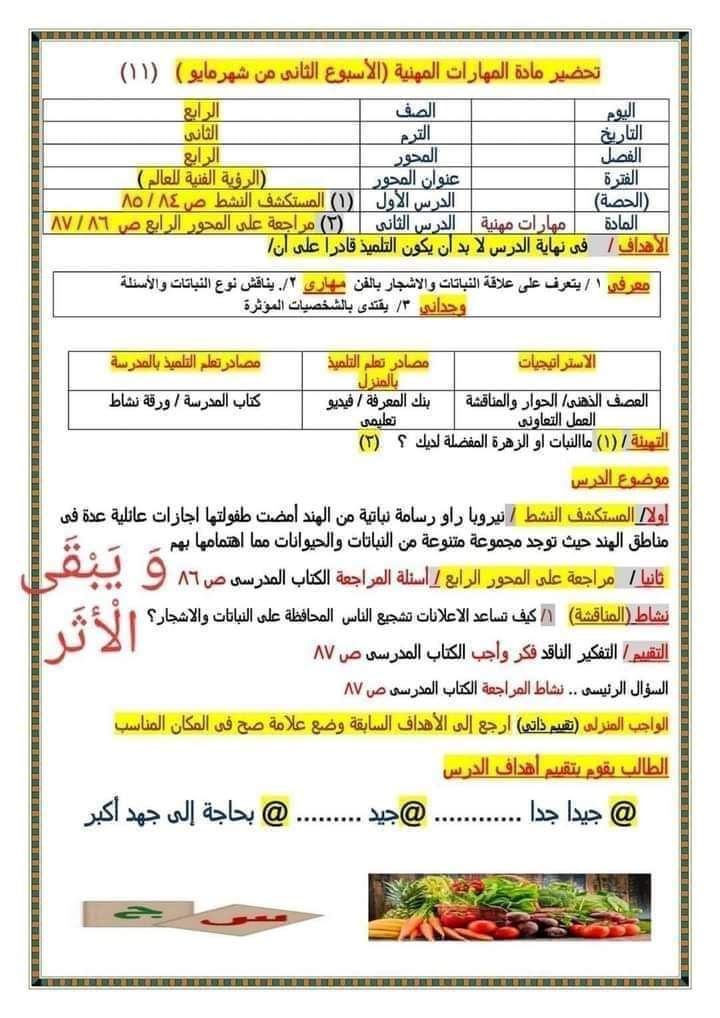 تحضير مادة المهارات المهنية (الأسبوع الثانى من شهرمايو ) (١١)
اليوم الصف الرابع
التاريخ الترم الثانى
الفصل المحور الرابع
الفترة عنوان المحور (الرؤية الفنية للعالم )
(الحصة) الدرس الأول (١) المستكشف النشط ص ٨٤ / ٨٥
المادة مهارات مهنية الدرس الثانى (٢) مراجعة على المحور الرابع ص ٨٦ / ٨٧
الأهداف / فى نهاية الدرس لا بد أن يكون التلميذ قادرا على أن/
معرفي ١ / يتعرف على علاقة النباتات والاشجار بالفن مهارى ٢/. يناقش نوع النباتات والأسئلة
وجدانى ٣/ يقتدى بالشخصيات المؤثرة
الاستراتيجيات مصادر تعلم التلميذ بالمنزل مصادرتعلم التلميذ بالمدرسة
العصف الذهنى/ الحوار والمناقشة العمل التعاونى بنك المعرفة / فيديو تعليمى كتاب المدرسة / ورقة نشاط
التهيئة / (١) ماالنبات او الزهرة المفضلة لديك ؟ (٢)
موضوع الدرس
أولا/ المستكشف النشط / نيروبا راو رسامة نباتية من الهند أمضت طفولتها اجازات عائلية عدة فى
مناطق الهند حيث توجد مجموعة متنوعة من النباتات والحيوانات مما اهتمامها بهم
ثانيا / مراجعة على المحور الرابع / أسئلة المراجعة الكتاب المدرسى ص ٨٦
نشاط (المناقشة) ١/ كيف تساعد الاعلانات تشجيع الناس المحافظة على النباتات والاشجار؟
وَ يَبْقَى
الْأثَر
التقييم / التفكير الناقد فكر وأجب الكتاب المدرسى ص ٨٧
السؤال الرئيسى .. نشاط المراجعة الكتاب المدرسى ص ٨٧
الواجب المنزلى (تقييم ذاتى) ارجع إلى الأهداف السابقة وضع علامة صح فى المكان المناسب
الطالب يقوم بتقييم أهداف الدرس
@ جيدا جدا ............ @جيد ......... @ بحاجة إلى جهد أكبر
س ج